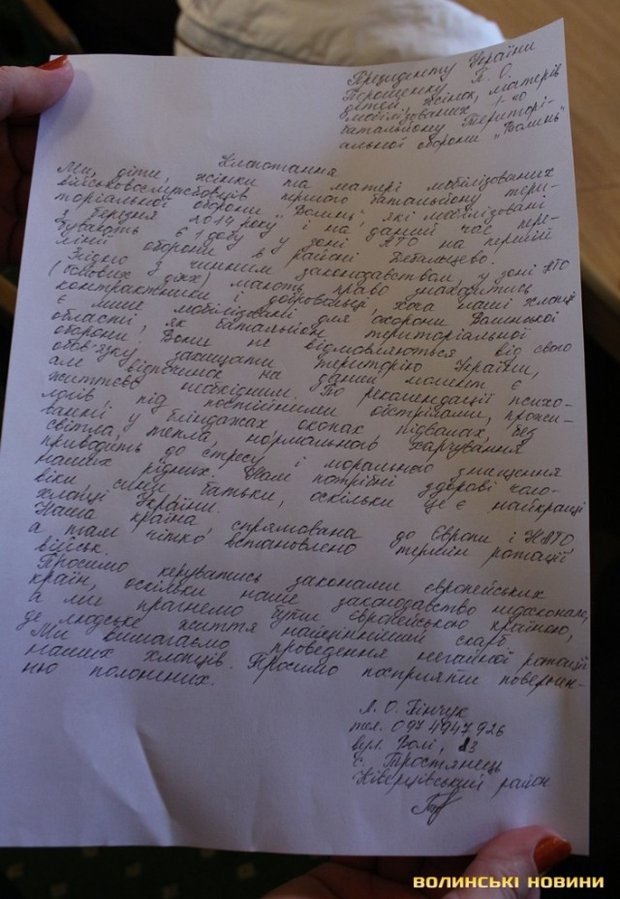 Президенту України
Порошенку П. О.
дітей, жінок, матерів
мобілізованих 1-го
батальйону Територі-
альної оборони "Волинь"
Клопотання
Ми, діти, жінки та матері мобілізованих
військовослужбовців першого батальйону тери-
торіальної оборони "Волинь", які мобілізовані
з березня 2014 року і на даний час пере-
бувають у зоні АТО на першій
лінії оборони в районі Дебальцево.
Згідно з чинним законодавством, у зоні АТО
(бойових дій) мають право знаходитись
контрактники і добровольці, хоча наші хлопці
є лише мобілізовані для охорони Волинської
області, як батальйон територіальної
оборони. Вони не відмовляються від свого
обов'язку захищати територію України,
але відпочинок на даний момент є
життєво необхідним. По рекомендації психо-
логів, під постійними обстрілами, прожи-
ванні у бліндажах окопах підвалах, без
світла, тепла, нормального харчування
приводить до стресу і морального знищення
наших рідних. Нам потрібні здорові чоло-
віки, сини, батьки, оскільки це є найкращі
хлопці України.
Наша країна, спрямована до Європи і НАТО,
а там чітко встановлено термін ротації
військ.
Просимо керуватись законами європейських
країн, оскільки наше законодавство недосконале,
а ми прагнемо бути Європейською країною,
де людське життя найцінніший скарб.
Ми вимагаємо проведення негайної ротації
наших хлопців. Просимо посприяти повернен-
ню полонених.
Л. О. Гінчук
тел. 097 4947 926
вул. Волі, 83
с. Тростянець
Ківерцівський район
ВОЛИНСЬКІ НОВИНИ